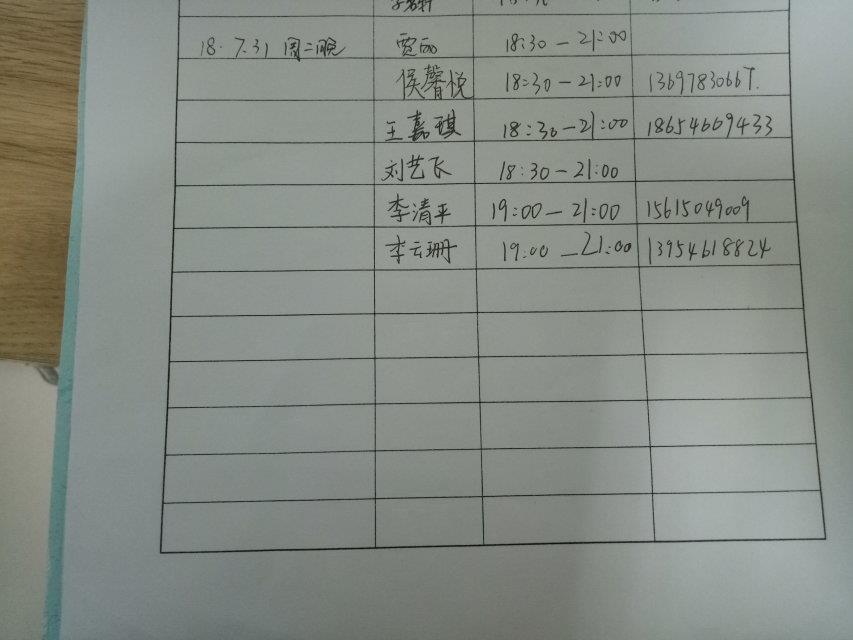 18.7.31 周二晚 贾丽 18:30—21:00
侯馨悦 18:30—21:00 13697830667.
王嘉琪 18:30—21:00 18654669433
刘艺飞 18:30—21:00
李清平 19:00—21:00 15615049009
李云珊 19:00—21:00 13954618824